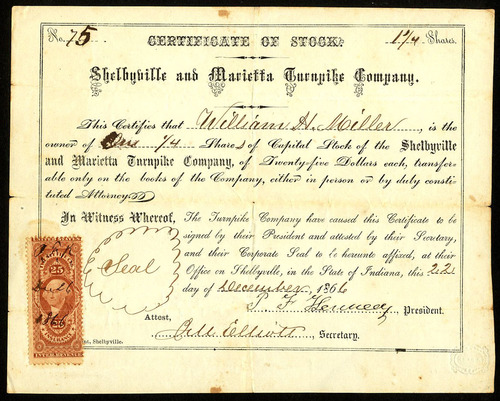 No. 75 CERTIFICATE OF STOCK. 1 1/4 Shares.
Shelbyville and Marietta Turnpike Company.
This Certifies that William H. Miller, is the
owner of One 1/4 Shares of Capital Stock of the Shelbyville
and Marietta Turnpike Company, of Twenty-five Dollars each, transfer-
able only on the books of the Company, either in person or by duly consti-
tuted Attorney.
In Witness Whereof, The Turnpike Company have caused this Certificate to be
signed by their President and attested by their Secretary,
and their Corporate Seal to be hereunto affixed, at their
Office on Shelbyville, in the State of Indiana, this 22
day of December, 1866
Seal
President.
Attest,
Elliott, Secretary.
Shelbyville.
25
1866
INTER. REVENUE